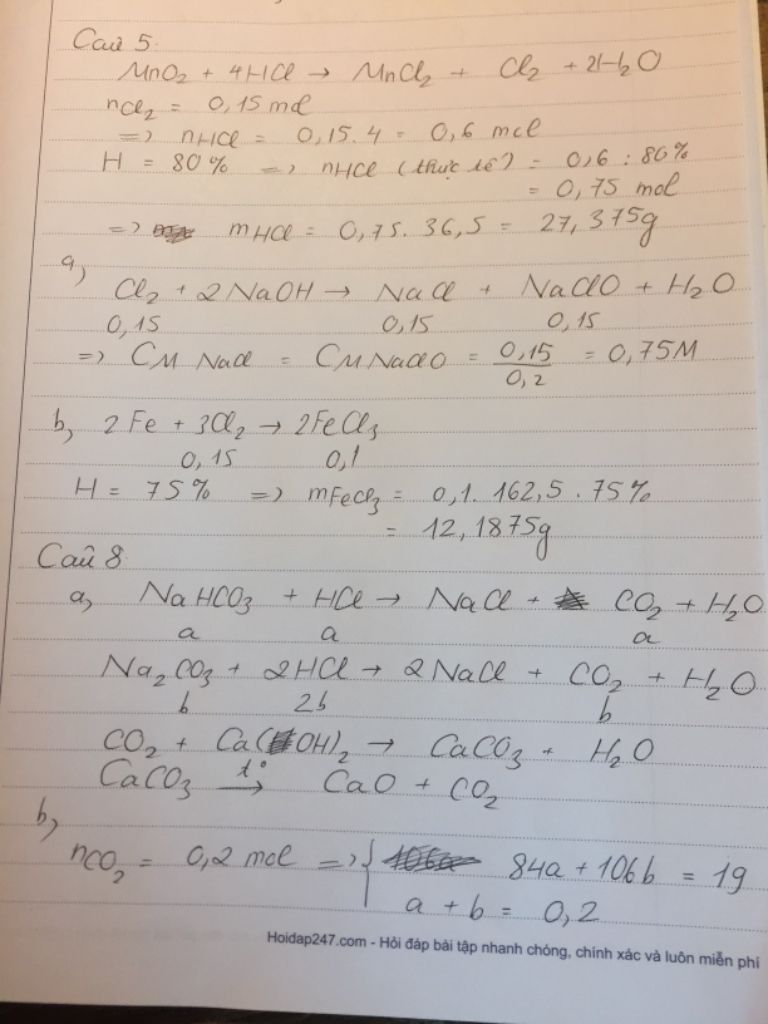 Câu 5
MnO₂ + 4HCl → MnCl₂ + Cl₂ + 2H₂O
nCl₂ = 0,15 mol
=> nHCl = 0,15.4 = 0,6 mol
H = 80% => nHCl (thực tế) = 0,6 : 80%
= 0,75 mol
=> mHCl = 0,75. 36,5 = 27,375g
a)
Cl₂ + 2NaOH → NaCl + NaClO + H₂O
0,15 0,15 0,15
=> CM NaCl = CM NaClO = 0,15/0,2 = 0,75M
b, 2Fe + 3Cl₂ → 2FeCl₃
0,15 0,1
H = 75% => mFeCl₃ = 0,1. 162,5 . 75%
= 12,1875g
Câu 8
a, NaHCO₃ + HCl → NaCl + CO₂ + H₂O
a a a
Na₂CO₃ + 2HCl → 2NaCl + CO₂ + H₂O
b 2b b
CO₂ + Ca(OH)₂ → CaCO₃ + H₂O
CaCO₃ t°→ CaO + CO₂
b,
nCO₂ = 0,2 mol => { 84a + 106b = 19
a + b = 0,2
Hoidap247.com - Hỏi đáp bài tập nhanh chóng, chính xác và luôn miễn phí